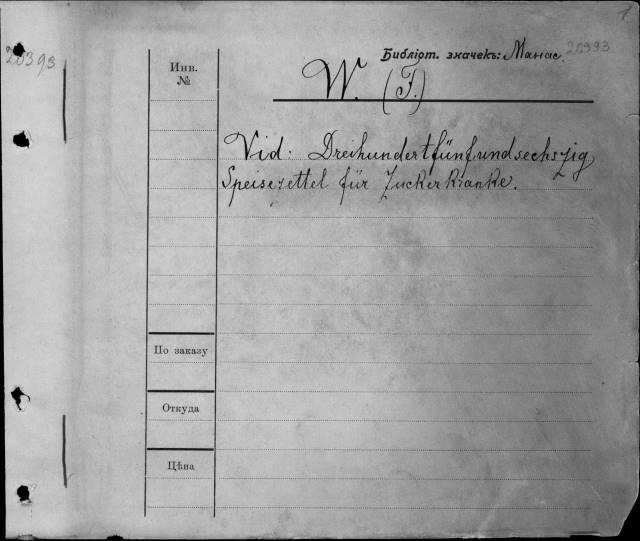 1
20393
Библіот. значекъ: Манас. 20393
Инв.
№
W. (F.)
Vid: Dreihundertfünfundsechszig
Speisezettel für Zuckerkranke.
По заказу
Откуда
Цѣна